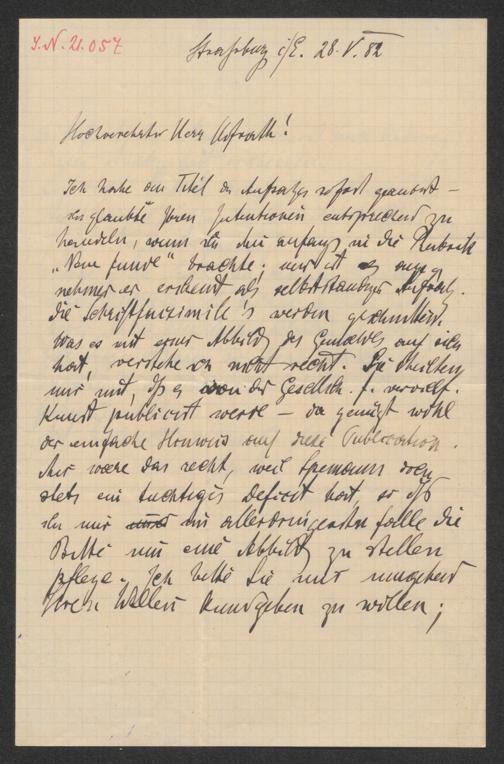 I.N. 21.057
Strassburg i/E. 28.V.82
Hochverehrter Herr Hofrath!
Ich habe den Titel des Aufsatzes sofort geändert –
ich glaubte Ihren Intentionen entsprechend zu
handeln, wenn ich ihn anfangs in die Rubrik
„Neue Funde" brachte; mir ist es ange
nehmer er erscheint als selbstständiger Aufsatz.
Die Schriftfacsimile's werden geschnitten.
Was es mit einer Abbildg des Gemäldes auf sich
hat, verstehe ich nicht recht. Sie theilten
mir mit, dß es von der Gesellsch. f. vervielf.
Kunst publicirt werde – da genügt wohl
der einfache Hinweis auf diese Publication.
Mir wäre das recht, weil Spemann doch
stets ein tüchtiges Deficit hat, so dß
ich nur im allerdringensten Falle die
Bitte um eine Abbildg zu stellen
pflege. Ich bitte Sie mir umgehend
Ihren Willen kundgeben zu wollen;